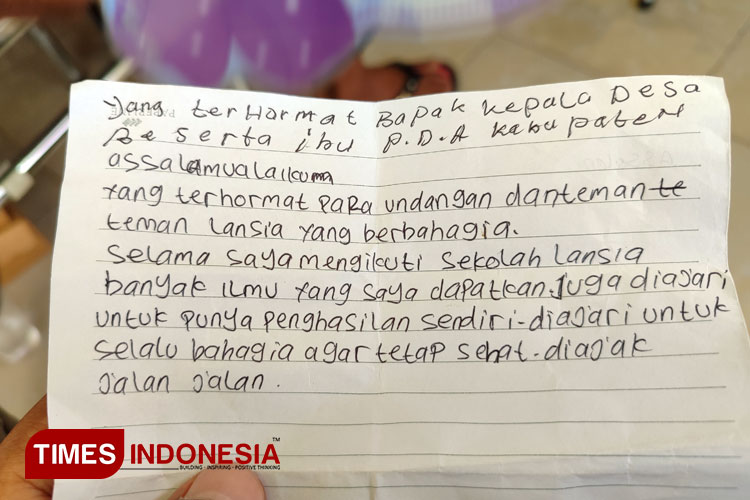 Yang terHormat Bapak kepala Desa
Beserta ibu P.D.A kabupaten
assalamualaikum
Yang terhormat paRa undangan danteman te
teman Lansia yang berbahagia.
Selama saya mengikuti sekolah Lansia
banyak ilmu yang saya dapatkan. Juga diajari
untuk punya penghasilan sendiri-diajari untuk
selalu bahagia agar tetap sehat. diajak
jalan jalan.
TIMES INDONESIA™
BUILDING - INSPIRING - POSITIVE THINKING